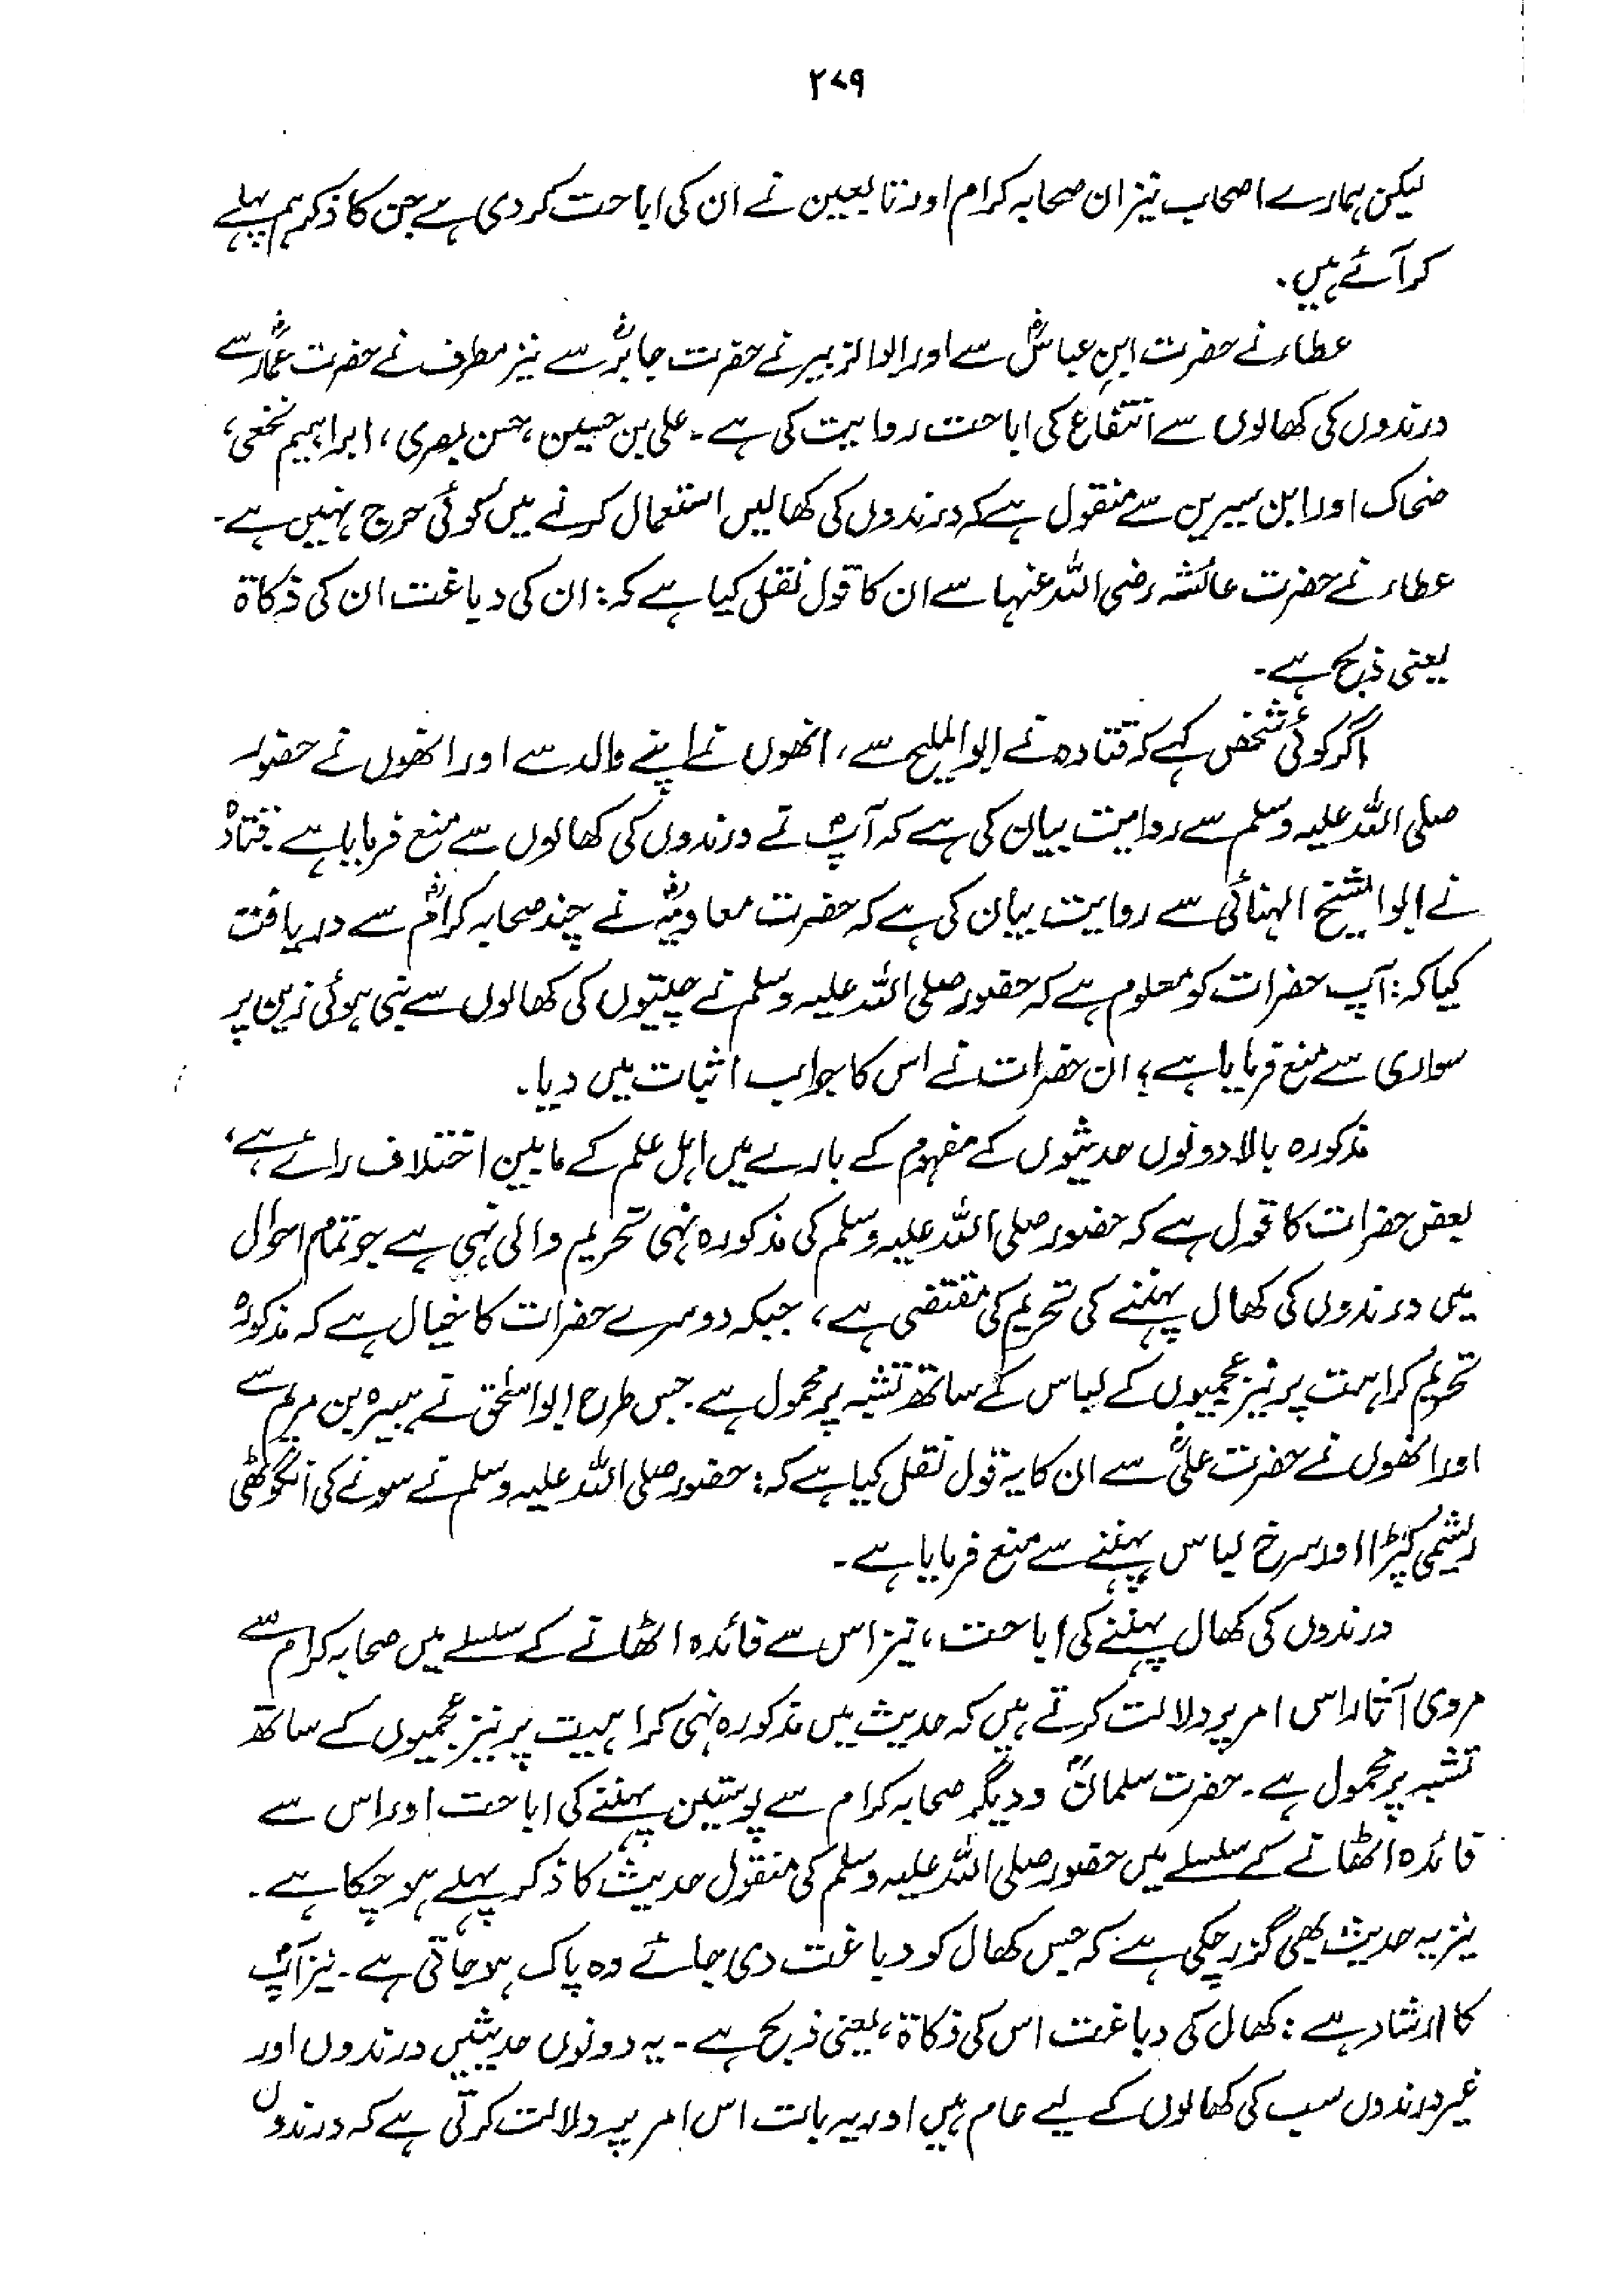 ۲۷۹
لیکن ہمارے اصحاب نیز ان صحابہ کرام اور تابعین نے ان کی اباحت کر دی ہے جن کا ذکر ہم پہلے
کر آئے ہیں۔
عطاء نے حضرت ابنِ عباسؓ سے اور ابوالزبیر نے حضرت جابرؓ سے نیز مطرف نے حضرت عمارؓ سے
درندوں کی کھالوں سے انتفاع کی اباحت روایت کی ہے۔ علی بن حسین، حسن بصری، ابراہیم نخعی،
ضحاک اور ابن سیرین سے منقول ہے کہ درندوں کی کھالیں استعمال کرنے میں کوئی حرج نہیں ہے۔
عطاء نے حضرت عائشہ رضی اللہ عنہا سے ان کا قول نقل کیا ہے کہ: ان کی دباغت ان کی ذکاۃ
یعنی ذبح ہے۔
اگر کوئی شخص کہے کہ قتادہ نے ابوالملیح سے، انھوں نے اپنے والد سے اور انھوں نے حضور
صلی اللہ علیہ وسلم سے روایت بیان کی ہے کہ آپؐ نے درندوں کی کھالوں سے منع فرمایا ہے قتادہ
نے ابوالشیخ الہنائی سے روایت بیان کی ہے کہ حضرت معاویہؓ نے چند صحابہ کرامؓ سے دریافت
کیا کہ: آپ حضرات کو معلوم ہے کہ حضور صلی اللہ علیہ وسلم نے چیتیوں کی کھالوں سے بنی ہوئی زین پر
سواری سے منع فرمایا ہے؟ ان حضرات نے اس کا جواب اثبات میں دیا۔
مذکورہ بالا دونوں حدیثوں کے مفہوم کے بارے میں اہل علم کے مابین اختلاف رائے ہے،
بعض حضرات کا قول ہے کہ حضور صلی اللہ علیہ وسلم کی مذکورہ نہی تحریم والی نہی ہے جو تمام احوال
میں درندوں کی کھال پہننے کی تحریم کی مقتضی ہے، جبکہ دوسرے حضرات کا خیال ہے کہ مذکورہ
تحریم کراہت پر نیز عجمیوں کے لباس کے ساتھ تشبہ پر محمول ہے۔ جس طرح ابواسحٰق نے ہبیرہ بن مریم سے
اور انھوں نے حضرت علیؓ سے ان کا یہ قول نقل کیا ہے کہ: حضور صلی اللہ علیہ وسلم نے سونے کی انگوٹھی
ریشمی کپڑا اور سرخ لباس پہننے سے منع فرمایا ہے۔
درندوں کی کھال پہننے کی اباحت، نیز اس سے فائدہ اٹھانے کے سلسلے میں صحابہ کرام سے
مروی آثار اس امر پر دلالت کرتے ہیں کہ حدیث میں مذکورہ نہی کراہیت پر نیز عجمیوں کے ساتھ
تشبہ پر محمول ہے۔ حضرت سلمانؓ و دیگر صحابہ کرام سے پوستین پہننے کی اباحت اور اس سے
فائدہ اٹھانے کے سلسلے میں حضور صلی اللہ علیہ وسلم کی منقول حدیث کا ذکر پہلے ہو چکا ہے۔
نیز یہ حدیث بھی گزر چکی ہے کہ جس کھال کو دباغت دی جائے وہ پاک ہو جاتی ہے۔ نیز آپؐ
کا ارشاد ہے: کھال کی دباغت اس کی ذکاۃ، یعنی ذبح ہے۔ یہ دونوں حدیثیں درندوں اور
غیر درندوں سب کی کھالوں کے لیے عام ہیں اور یہ بات اس امر پر دلالت کرتی ہے کہ درندوں